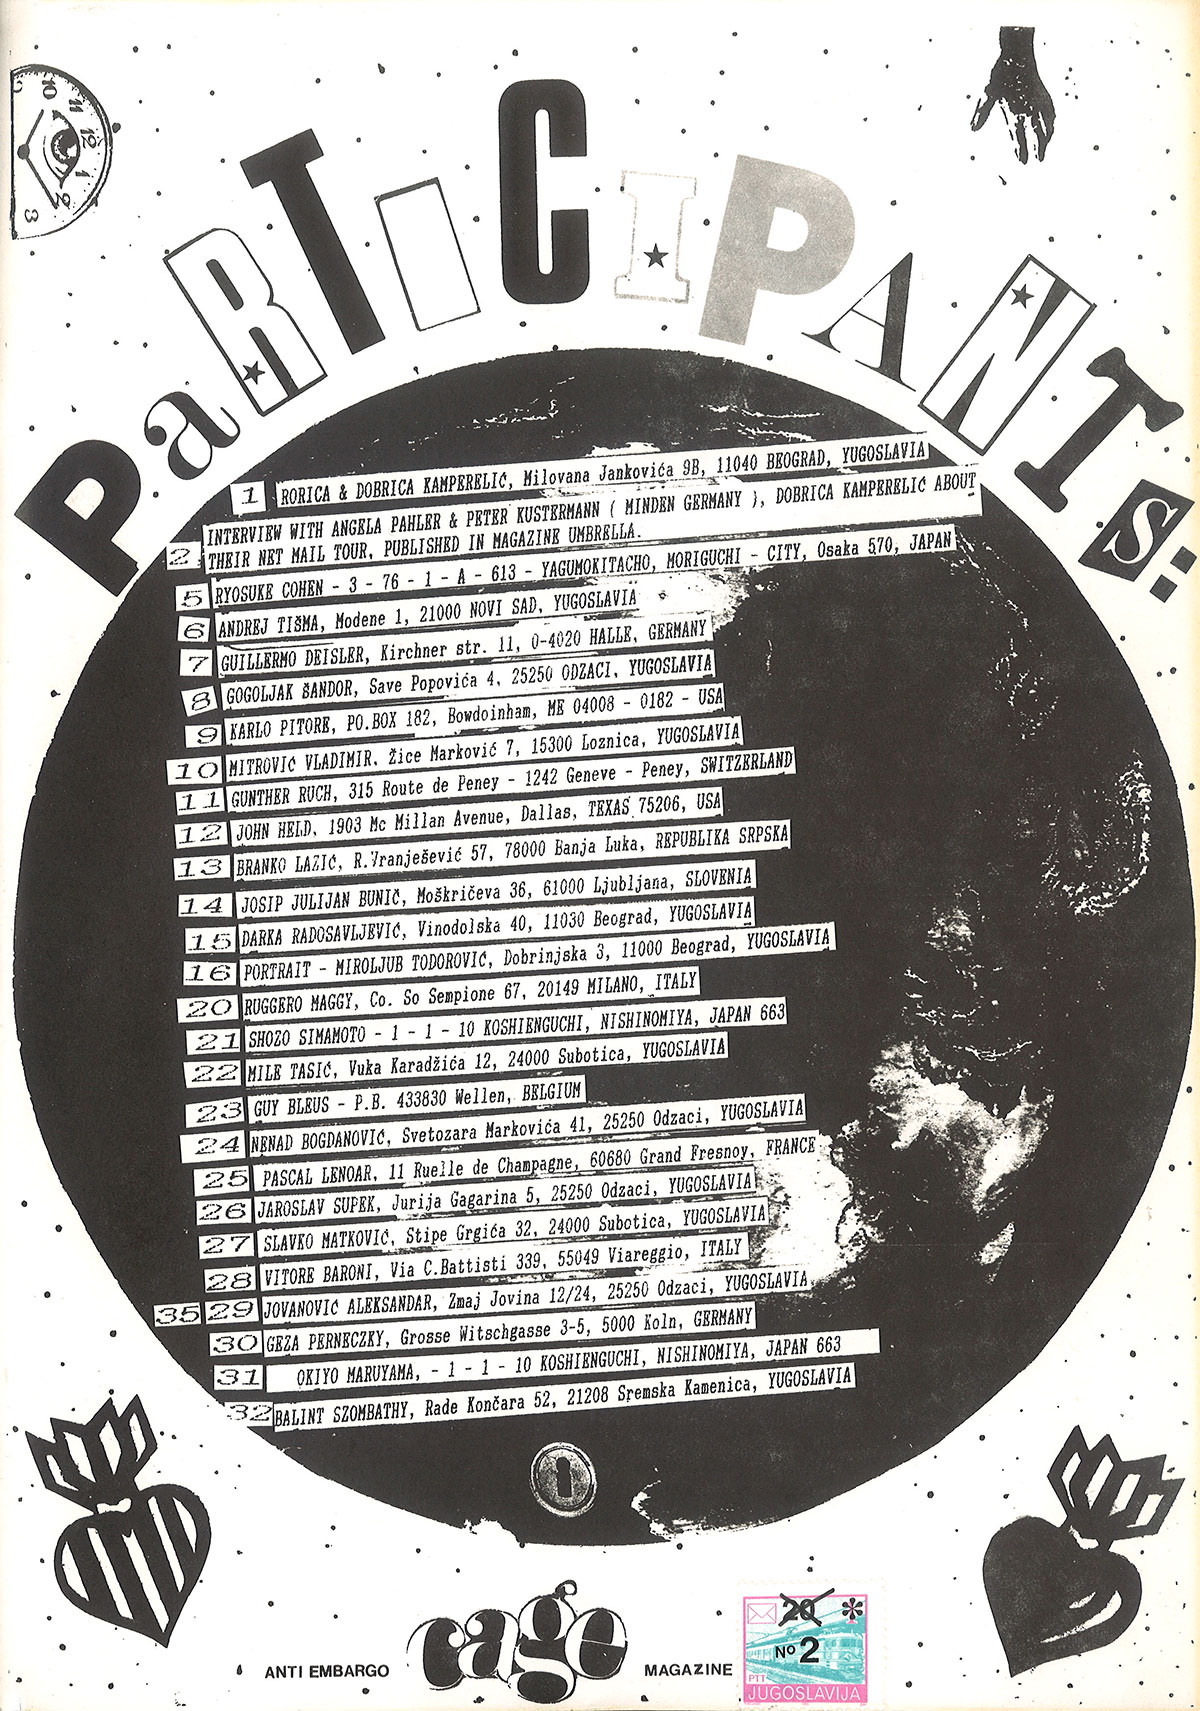 PaRTICIPANTS:
1 RORICA & DOBRICA KAMPERELIĆ, Milovana Jankovića 9B, 11040 BEOGRAD, YUGOSLAVIA
2. INTERVIEW WITH ANGELA PAHLER & PETER KUSTERMANN ( MINDEN GERMANY ), DOBRICA KAMPERELIĆ ABOUT
THEIR NET MAIL TOUR, PUBLISHED IN MAGAZINE UMBRELLA.
5 RYOSUKE COHEN - 3 - 76 - 1 - A - 613 - YAGUMOKITACHO, MORIGUCHI - CITY, Osaka 570, JAPAN
6 ANDREJ TIŠMA, Modene 1, 21000 NOVI SAD, YUGOSLAVIA
7 GUILLERMO DEISLER, Kirchner str. 11, O-4020 HALLE, GERMANY
8 GOGOLJAK ŠANDOR, Save Popovića 4, 25250 ODZACI, YUGOSLAVIA
9 KARLO PITORE, PO.BOX 182, Bowdoinham, ME 04008 - 0182 - USA
10 MITROVIĆ VLADIMIR, Žice Marković 7, 15300 Loznica, YUGOSLAVIA
11 GUNTHER RUCH, 315 Route de Peney - 1242 Geneve - Peney, SWITZERLAND
12 JOHN HELD, 1903 Mc Millan Avenue, Dallas, TEXAS 75206, USA
13 BRANKO LAZIĆ, R.Vranješević 57, 78000 Banja Luka, REPUBLIKA SRPSKA
14 JOSIP JULIJAN BUNIČ, Moškričeva 36, 61000 Ljubljana, SLOVENIA
15 DARKA RADOSAVLJEVIĆ, Vinodolska 40, 11030 Beograd, YUGOSLAVIA
16 PORTRAIT - MIROLJUB TODOROVIĆ, Dobrinjska 3, 11000 Beograd, YUGOSLAVIA
20 RUGGERO MAGGY, Co. So Sempione 67, 20149 MILANO, ITALY
21 SHOZO SIMAMOTO - 1 - 1 - 10 KOSHIENGUCHI, NISHINOMIYA, JAPAN 663
22 MILE TASIĆ, Vuka Karadžića 12, 24000 Subotica, YUGOSLAVIA
23 GUY BLEUS - P.B. 433830 Wellen, BELGIUM
24 NENAD BOGDANOVIĆ, Svetozara Markovića 41, 25250 Odzaci, YUGOSLAVIA
25 PASCAL LENOAR, 11 Ruelle de Champagne, 60680 Grand Fresnoy, FRANCE
26 JAROSLAV SUPEK, Jurija Gagarina 5, 25250 Odzaci, YUGOSLAVIA
27 SLAVKO MATKOVIĆ, Stipe Grgića 32, 24000 Subotica, YUGOSLAVIA
28 VITORE BARONI, Via C.Battisti 339, 55049 Viareggio, ITALY
35 29 JOVANOVIĆ ALEKSANDAR, Zmaj Jovina 12/24, 25250 Odzaci, YUGOSLAVIA
30 GEZA PERNECZKY, Grosse Witschgasse 3-5, 5000 Koln, GERMANY
31 OKIYO MARUYAMA, - 1 - 1 - 10 KOSHIENGUCHI, NISHINOMIYA, JAPAN 663
32 BALINT SZOMBATHY, Rade Končara 52, 21208 Sremska Kamenica, YUGOSLAVIA
ANTI EMBARGO cage MAGAZINE
20 *
No 2
PTT
JUGOSLAVIJA
10 11 12 1 2 3